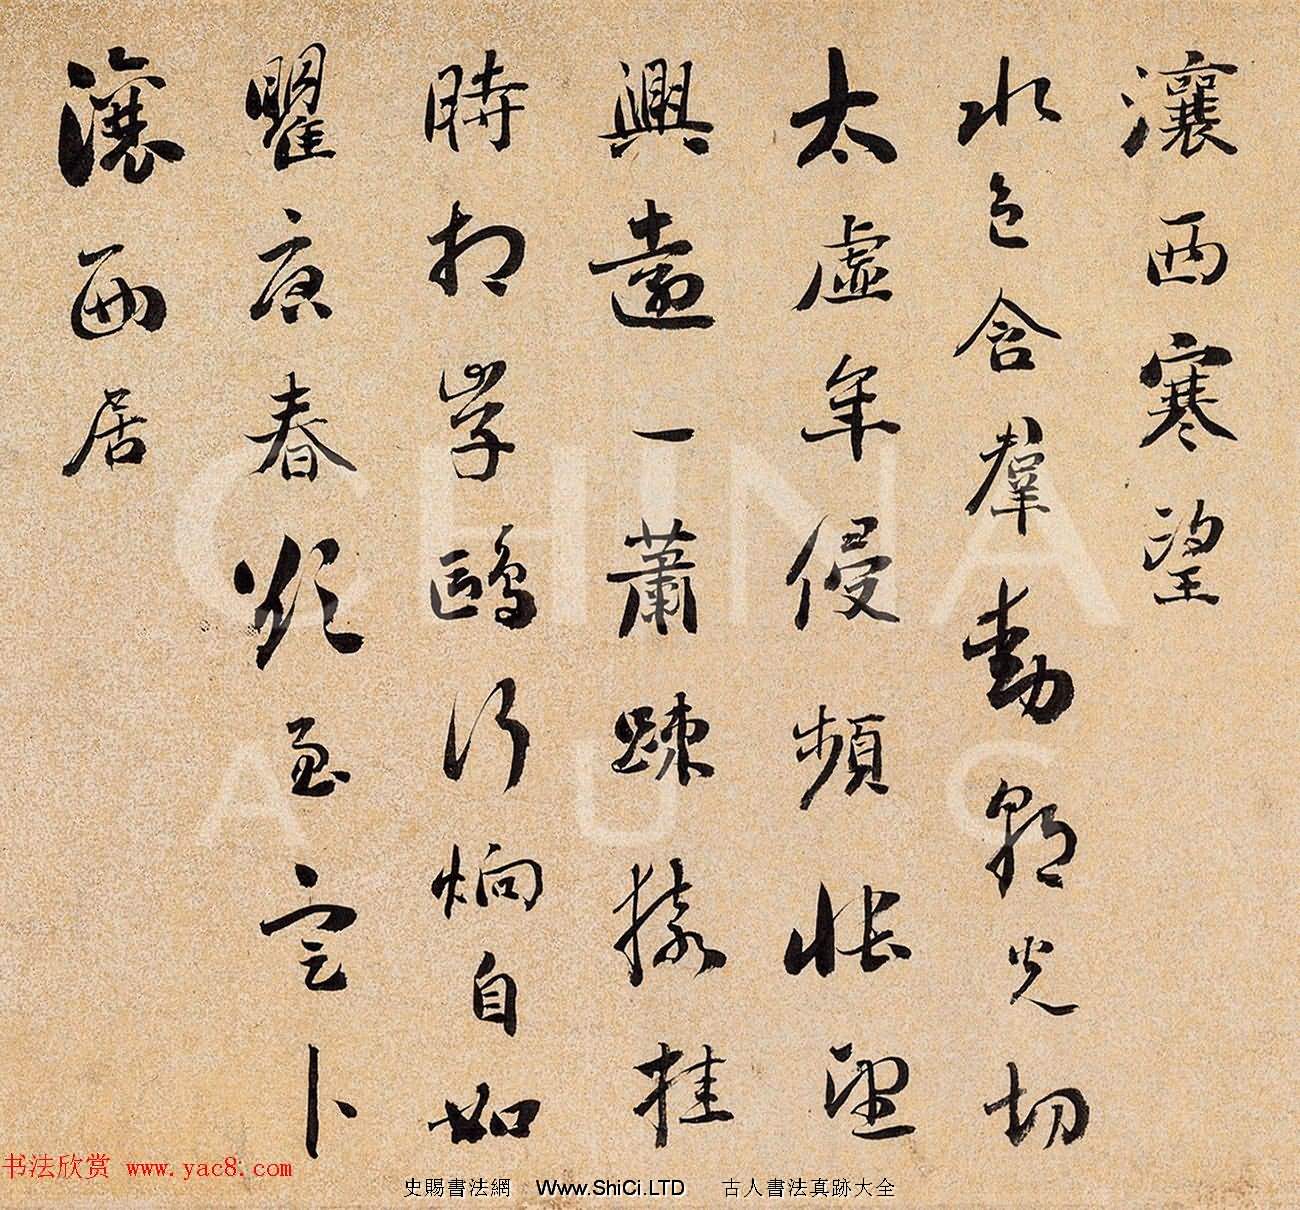 瀼西寒望
水色含羣動朝光切
太虛年侵頻悵望
興遠一蕭疎猿挂
時相學鷗行炯自如
瞿唐春欲至定卜
瀼西居
CHINA
书法欣赏 www.yac8.com
史賜書法網 Www.ShiCi.LTD 古人書法真跡大全